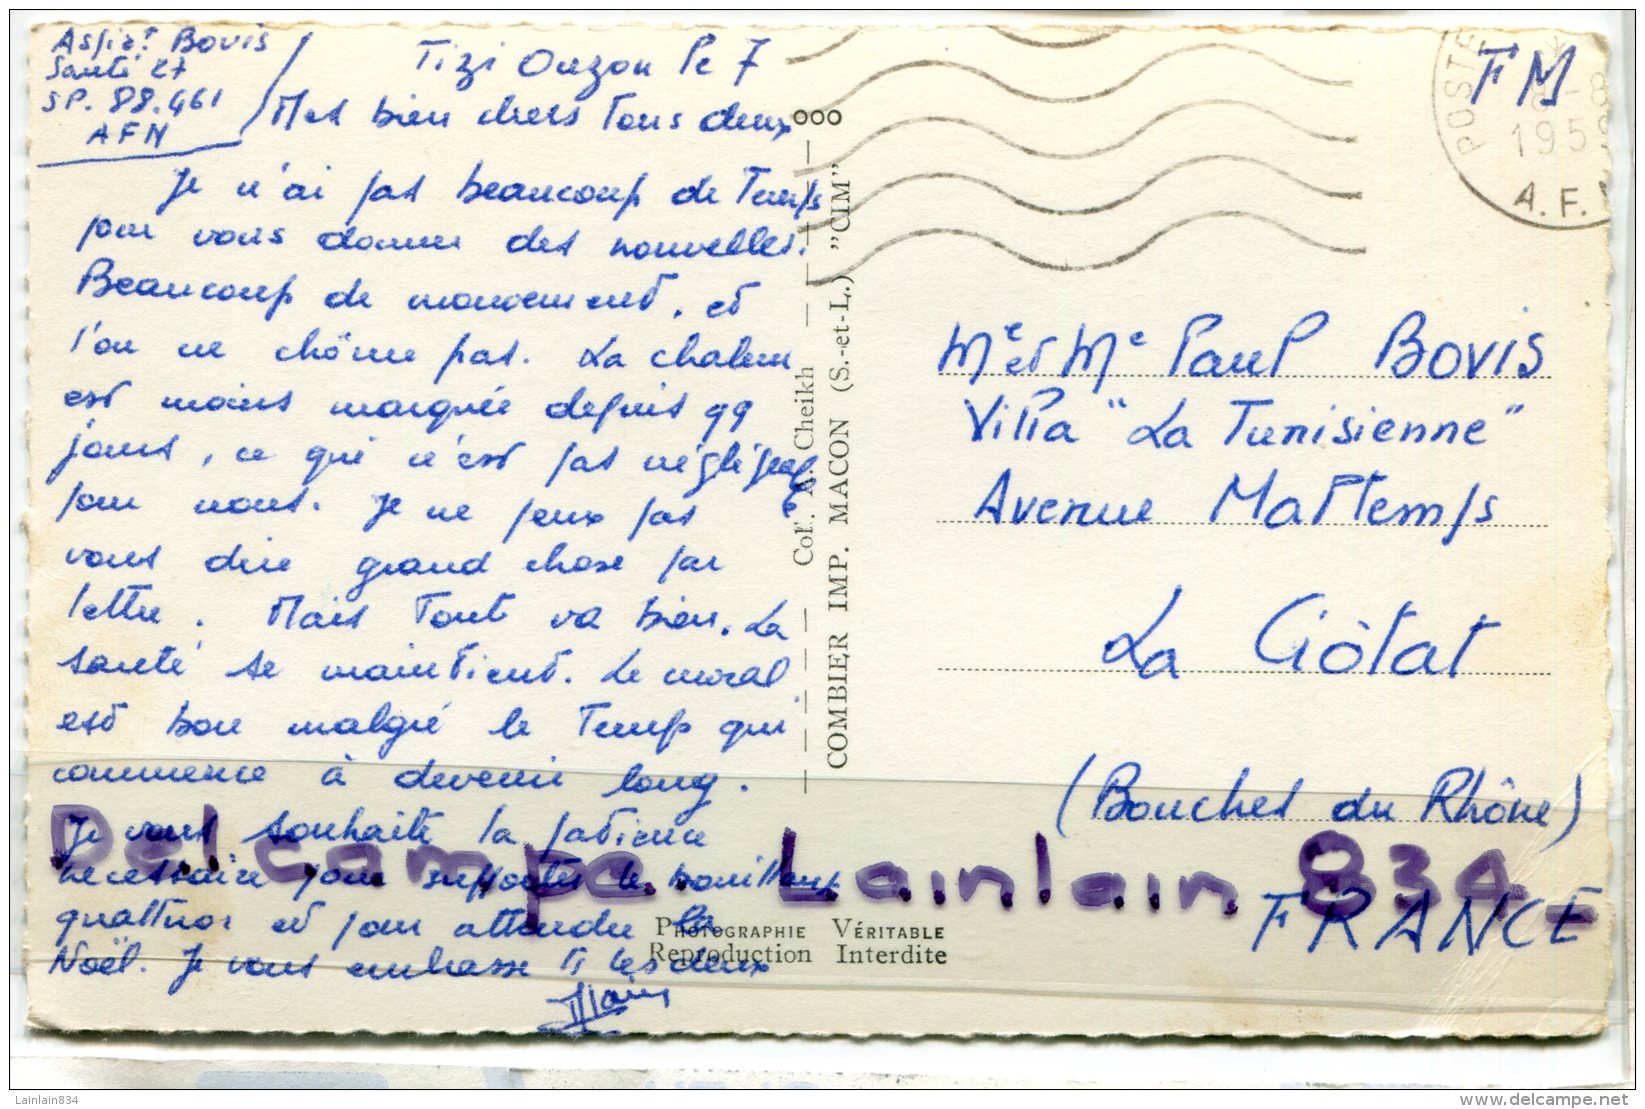 Aspirt Bovis
Santé 27
SP. 88.461
AFN
Tizi Ouzou le 7
Mes bien chers Tous deux
Je n'ai pas beaucoup de Temps
pour vous donner des nouvelles.
Beaucoup de mouvement, et
l'on ne chôme pas. La chaleur
est moins marquée depuis qq
jours, ce qui n'est pas négligeable
pour nous. Je ne peux pas
vous dire grand chose par
lettre. Mais Tout va bien. La
santé se maintient. Le moral
est bon malgré le Temps qui
commence à devenir long.
Je vous souhaite la patience
nécessaire pour supporter le bouillant
quattuor et pour attendre la
Noël. Je vous embrasse Ts les deux
Alain
ooo
Col. A. Cheikh
COMBIER IMP. MACON (S.-et-L.) "CIM"
FM
POSTE
1959
A. F.
Me et Me Paul Bovis
Villa "La Tunisienne"
Avenue Maltemps
La Ciôtat
(Bouches du Rhône)
FRANCE
Delcampe. Lainlain 834
Photographie Véritable
Reproduction Interdite
Lainlain834
www.delcampe.net